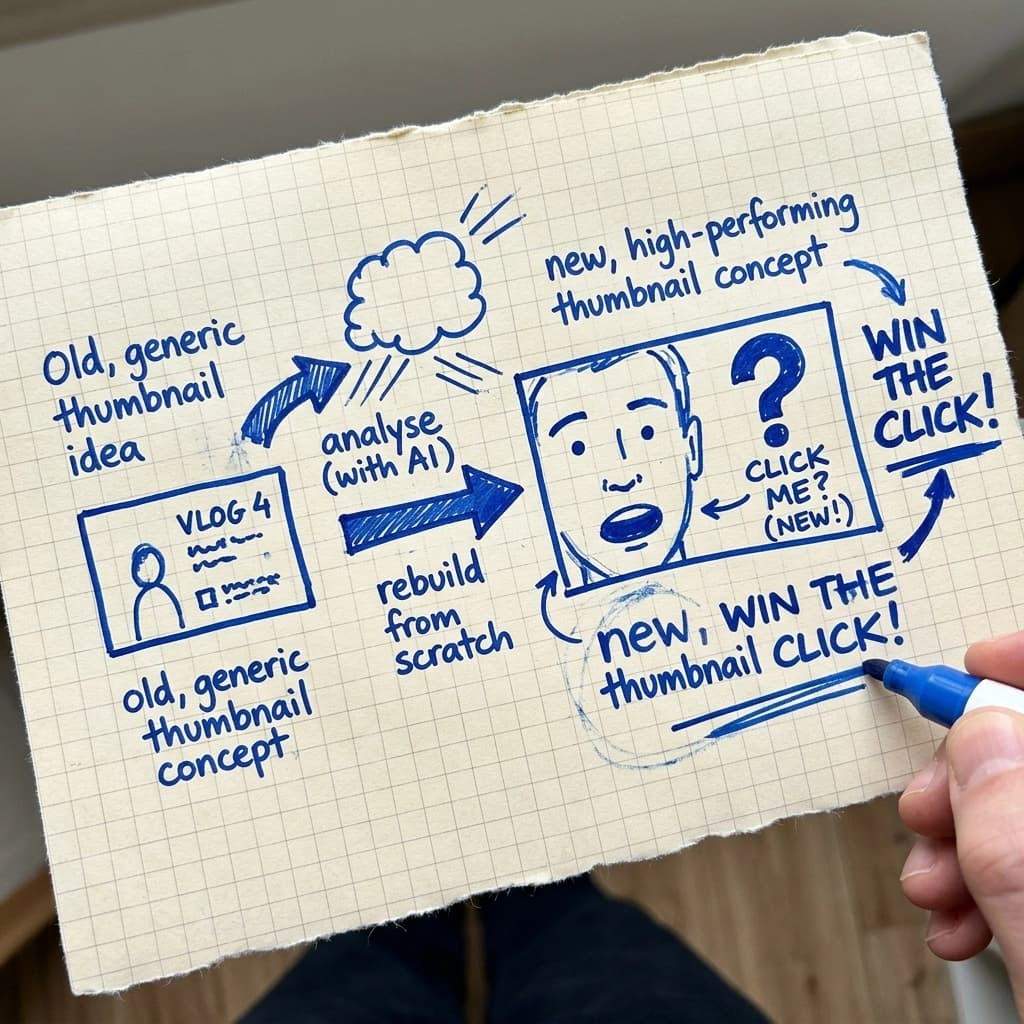 Old, generic
thumbnail
idea
VLOG 4
old, generic
thumbnail
concept
analyse
(with AI)
rebuild
from
scratch
new, high-performing
thumbnail concept
?
CLICK
ME?
(NEW!)
WIN
THE
CLICK!
new, WIN THE
thumbnail CLICK!